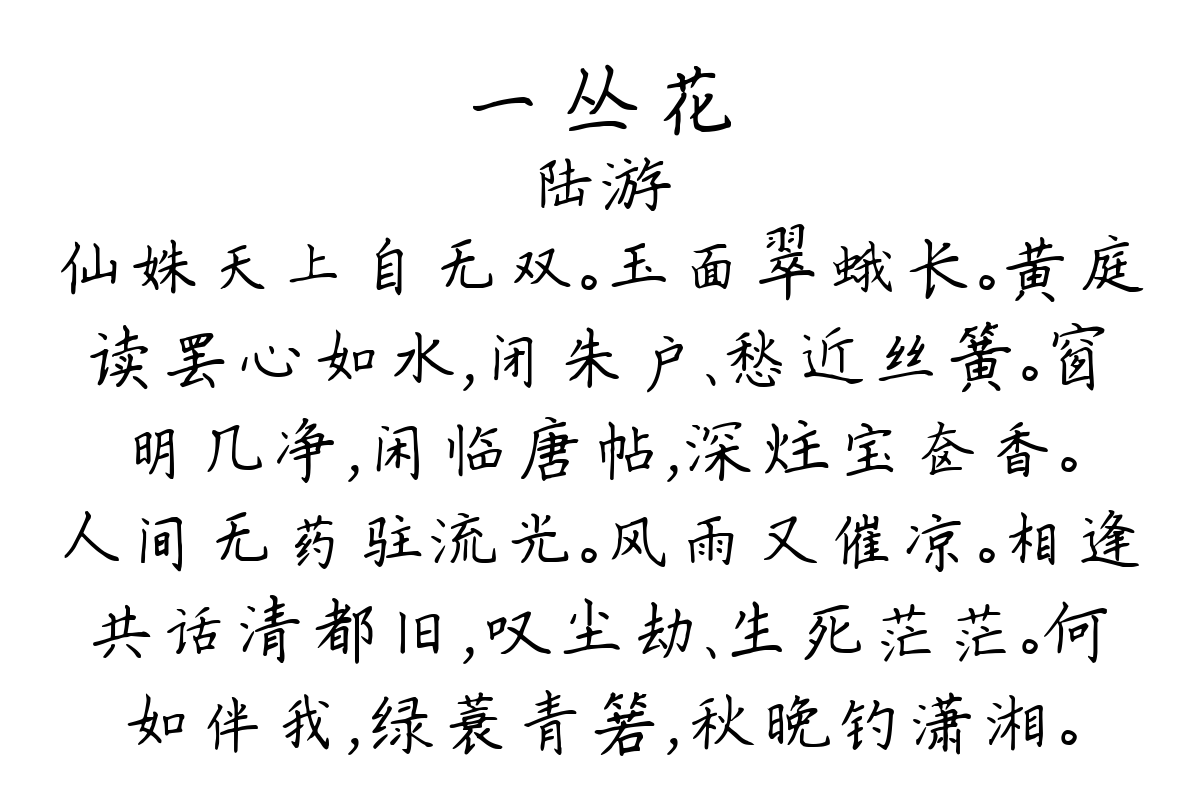 一丛花
陆游
仙姝天上自无双。玉面翠蛾长。黄庭
读罢心如水,闭朱户、愁近丝簧。窗
明几净,闲临唐帖,深炷宝奁香。
人间无药驻流光。风雨又催凉。相逢
共话清都旧,叹尘劫、生死茫茫。何
如伴我,绿蓑青箬,秋晚钓潇湘。